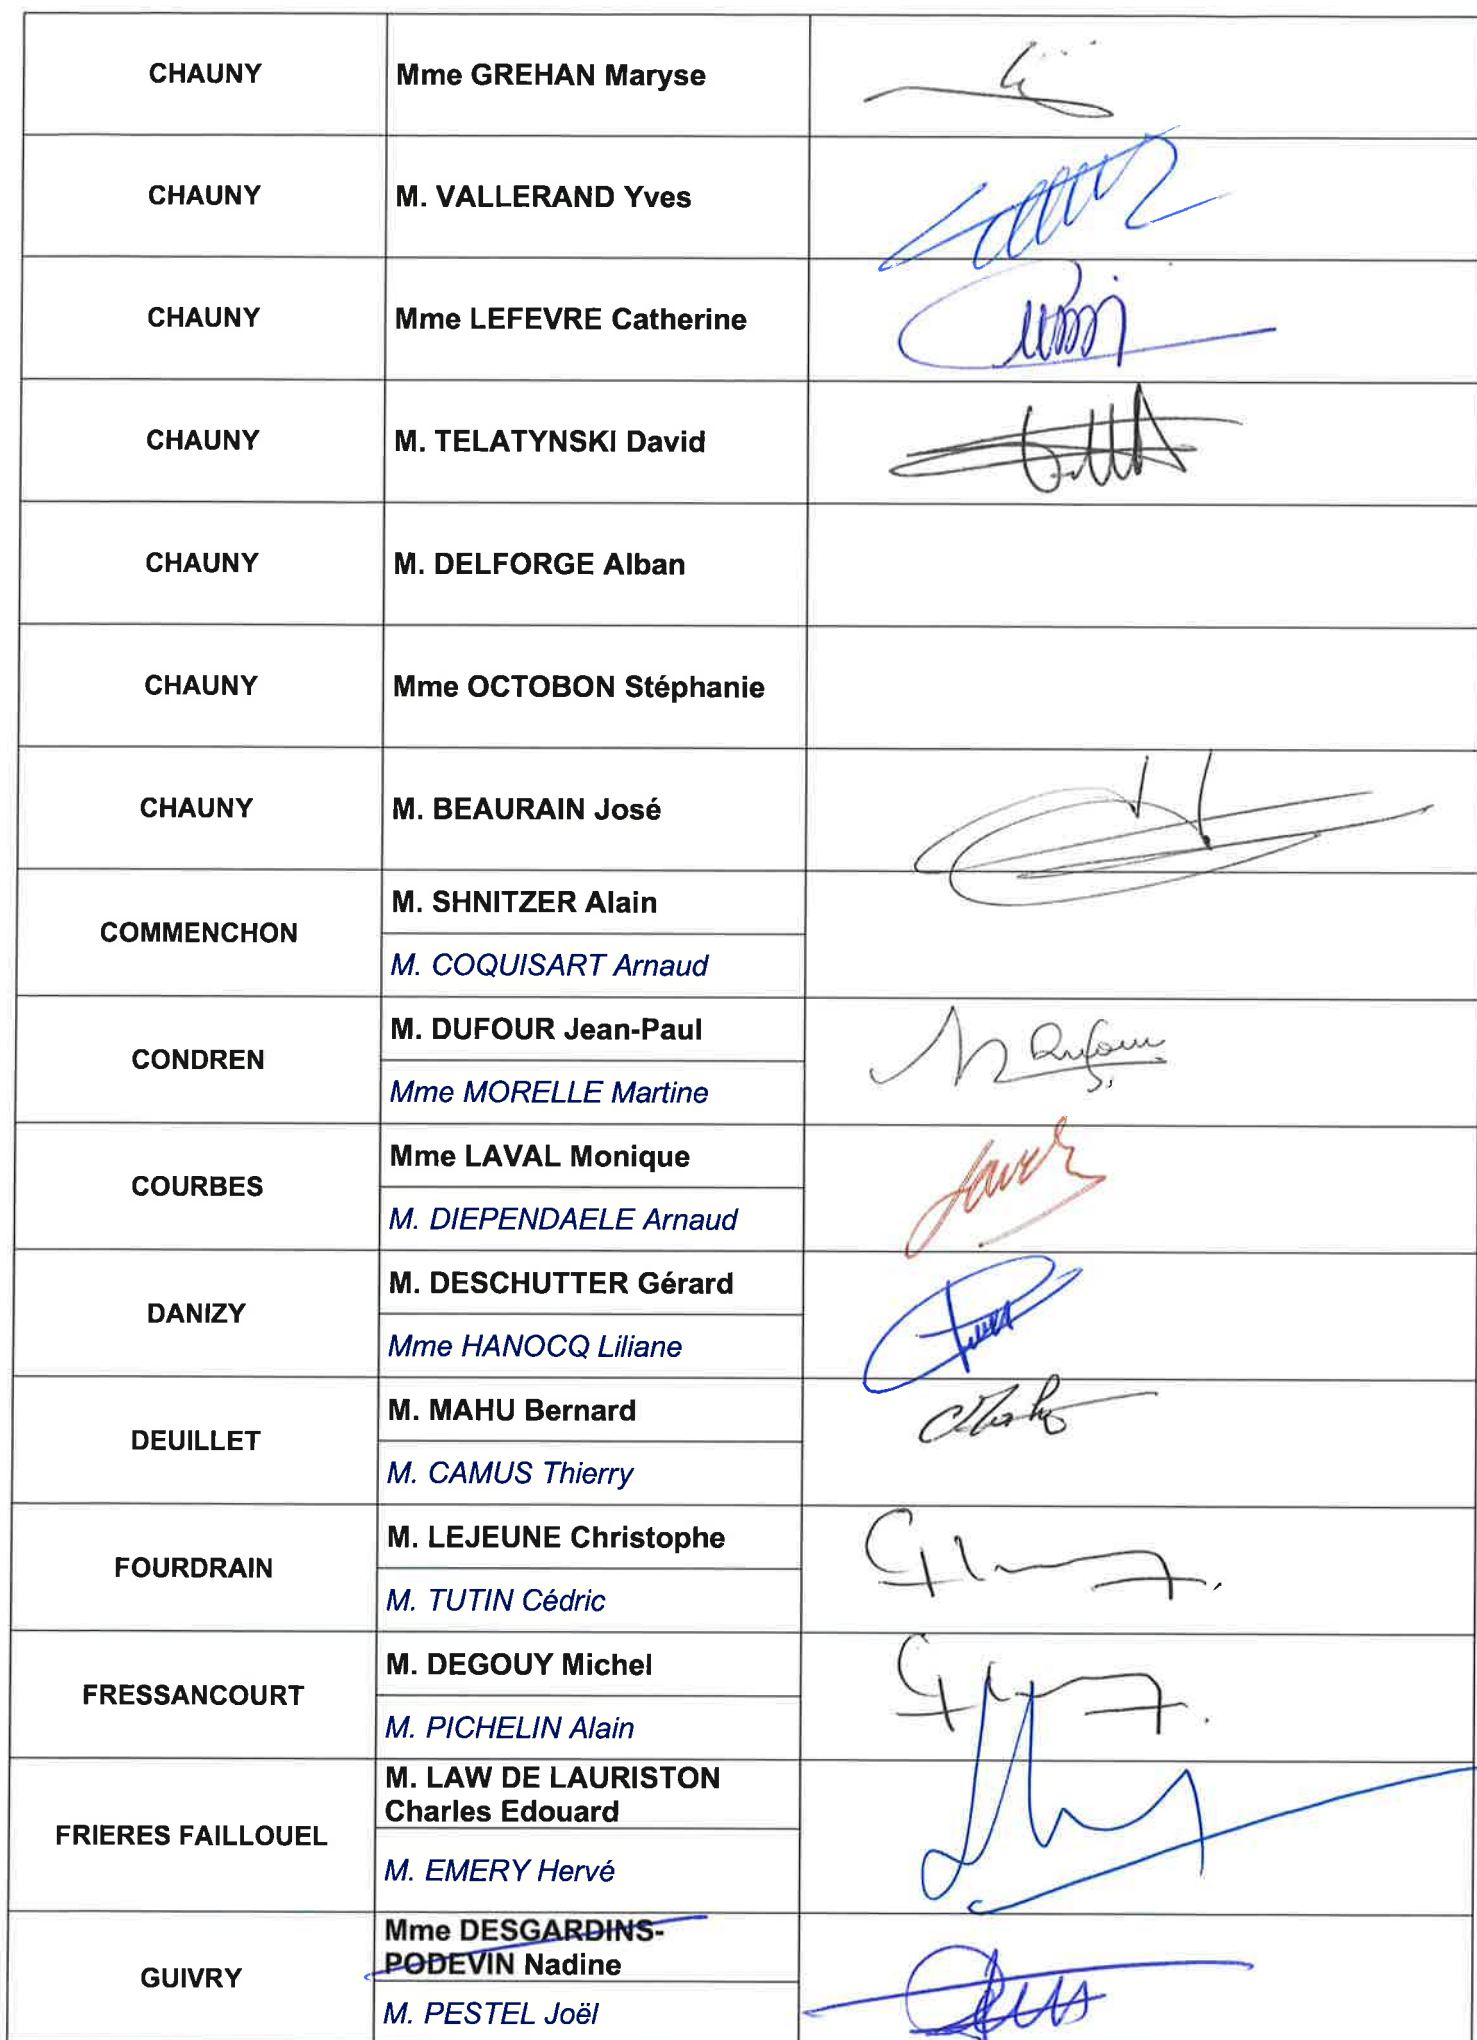 CHAUNY
Mme GREHAN Maryse
CHAUNY
M. VALLERAND Yves
CHAUNY
Mme LEFEVRE Catherine
CHAUNY
M. TELATYNSKI David
CHAUNY
M. DELFORGE Alban
CHAUNY
Mme OCTOBON Stéphanie
CHAUNY
M. BEAURAIN José
COMMENCHON
M. SHNITZER Alain
M. COQUISART Arnaud
CONDREN
M. DUFOUR Jean-Paul
Dufour
Mme MORELLE Martine
COURBES
Mme LAVAL Monique
M. DIEPENDAELE Arnaud
DANIZY
M. DESCHUTTER Gérard
Mme HANOCQ Liliane
DEUILLET
M. MAHU Bernard
M. CAMUS Thierry
FOURDRAIN
M. LEJEUNE Christophe
M. TUTIN Cédric
FRESSANCOURT
M. DEGOUY Michel
M. PICHELIN Alain
FRIERES FAILLOUEL
M. LAW DE LAURISTON
Charles Edouard
M. EMERY Hervé
GUIVRY
Mme DESGARDINS-
PODEVIN Nadine
M. PESTEL Joël